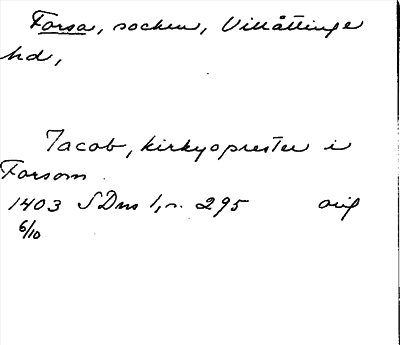 Forsa, socken, Villåttinge
hd,
Jacob, kirkyoprester i
Forsom
1403 SDns 1, n. 295 orig
6/10